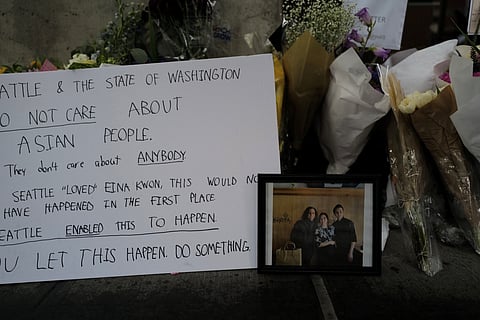 ATTLE & THE STATE OF WASHINGTON
O NOT CARE ABOUT
ASIAN PEOPLE.
They don't care about ANYBODY.
SEATTLE "LOVED" EINA KWON, THIS WOULD NO
HAVE HAPPENED IN THE FIRST PLACE
EATTLE ENABLED THIS TO HAPPEN.
OU LET THIS HAPPEN. DO SOMETHING.